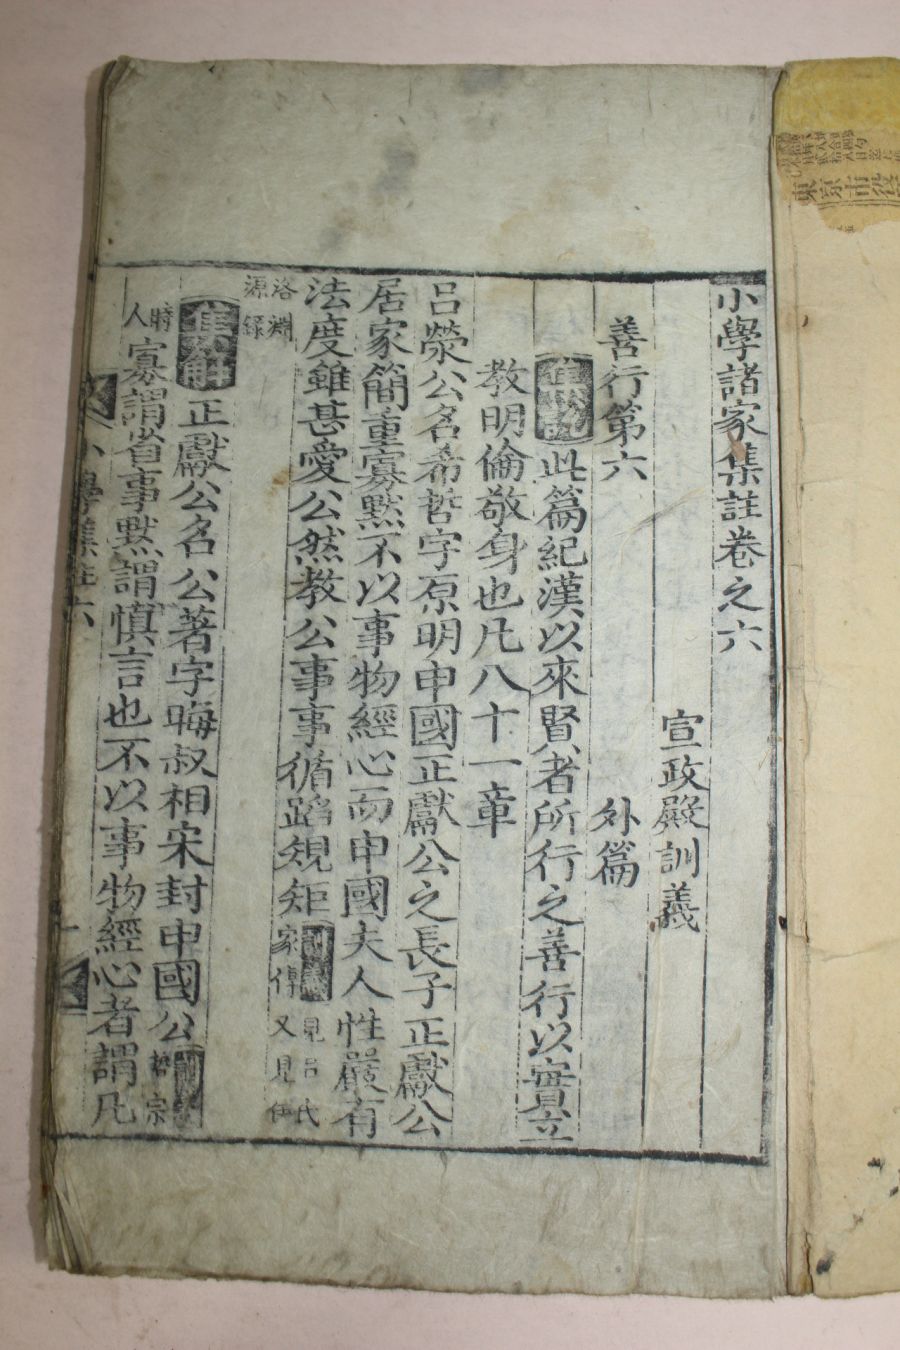 小學諸家集註卷之六
宣政殿訓義
善行第六
外篇
集說此篇紀漢以來賢者所行之善行以實立
教明倫敬身也凡八十一章
呂滎公名希哲字原明申國正獻公之長子正獻公
居家簡重寡默不以事物經心而申國夫人性嚴有
法度雖甚愛公然教公事事循蹈規矩
見呂氏
家傳又見伊
洛淵
源錄
集解正獻公名公著字晦叔相宋封申國公
哲宗
時
人
寡謂省事默謂愼言也不以事物經心者謂凡
小學集註六
東京市役